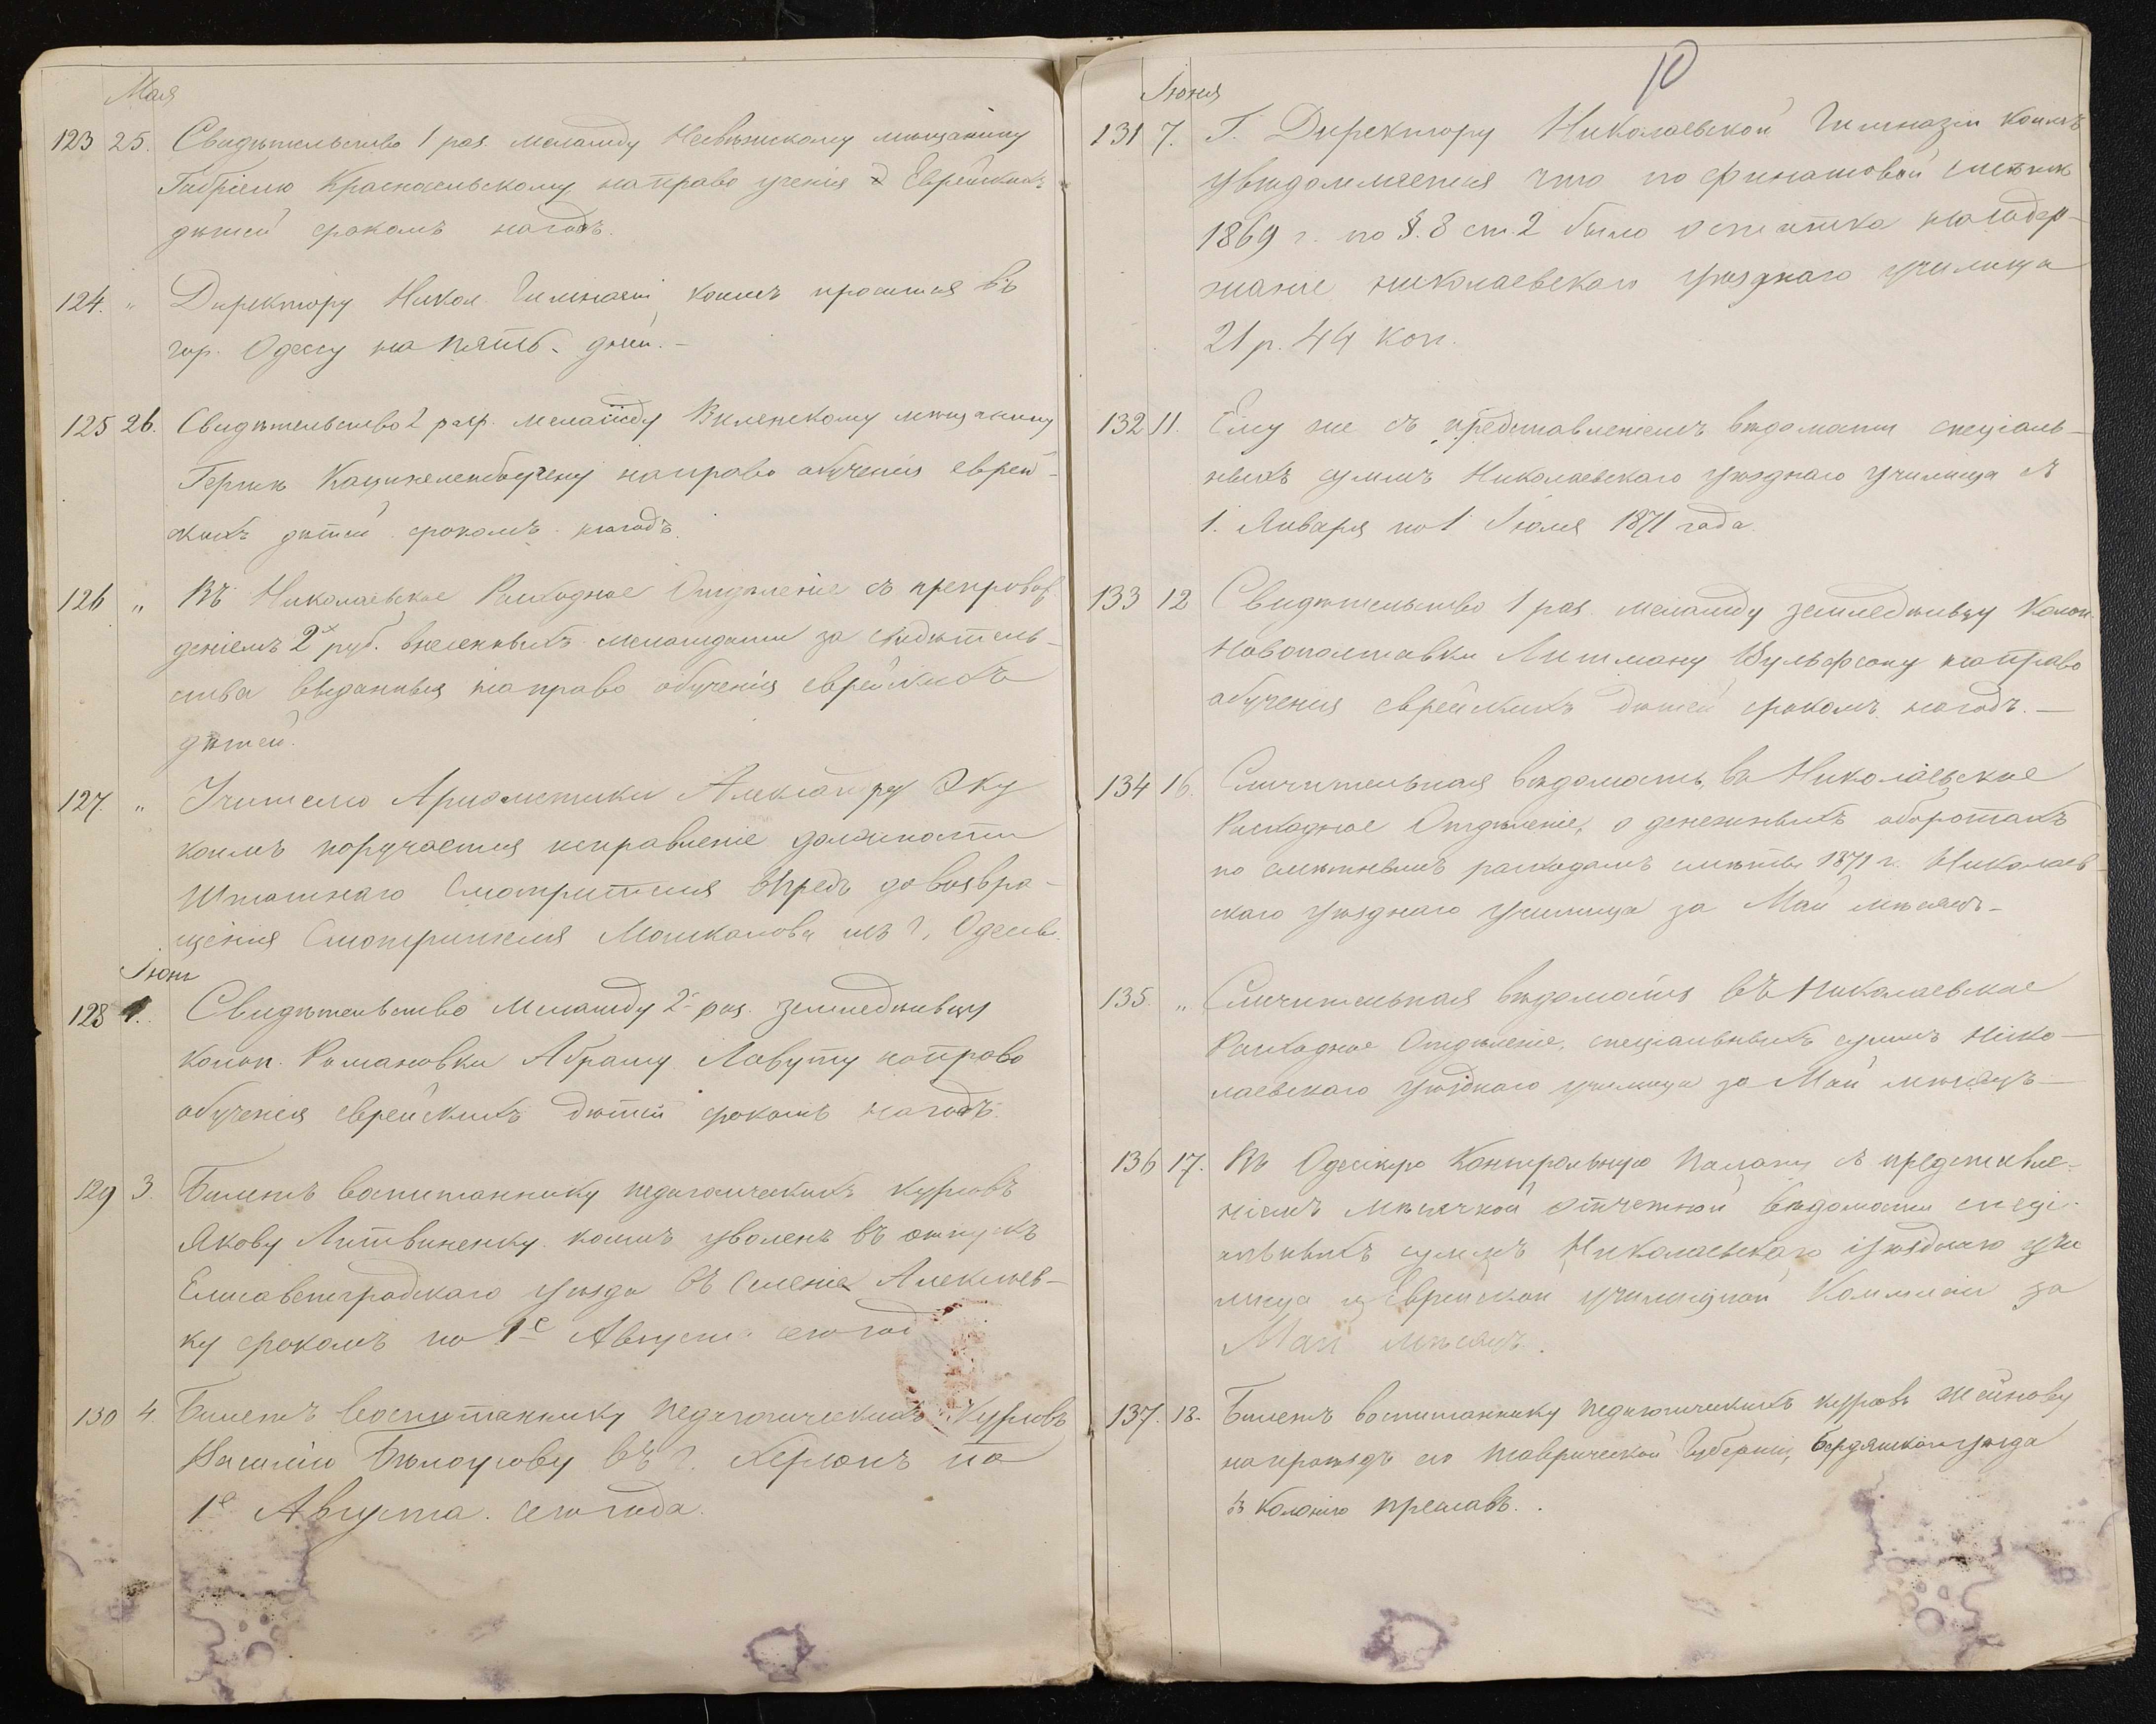 Мая
123 25. Свидѣтельство 1 раз. меламду Несвижскому мѣщанину
Габріелю Красносельскому на право ученія Еврейскихъ
дѣтей срокомъ на годъ.
124. " Директору Никол. Гимназіи коимъ просится въ
гор. Одессу на пять дней. –
125 26. Свидѣтельство 2 разр. меламду Виленскому мѣщанину
на право обученія еврей-
скихъ дѣтей срокомъ на годъ.
126 " Въ Николаевское Расходное Отдѣленіе съ препровож
деніемъ 2х руб. внесенныхъ меламдами за свидѣтель-
ства выданныя на право обученія еврейскихъ
дѣтей.
127. " Учителю Ариѳметики Александру Эку
коимъ поручается исправленіе должности
Штатнаго Смотрителя впредь до возвра-
щенія Смотрителя изъ г. Одессы.
Іюнь
128 1. Свидѣтельство Меламду 2 раз. земледѣльцу
колон. Романовки Абраму Лавуту на право
обученія еврейскихъ дѣтей срокомъ на годъ.
129 3. Билетъ воспитаннику педагогическихъ курсовъ
Якову Литвиненку коимъ уволенъ въ отпускъ
Елисаветградскаго уѣзда въ Селеніе Алексѣев-
ку срокомъ по 1е Августа сего год
130 4. Билетъ воспитаннику педагогическихъ курсовъ
Василію Бѣлоусову въ г. Херсонъ по
1е Августа. сего года.
10
Іюня
131 7. Г. Директору Николаевской Гимназіи коимъ
увѣдомляется что по финансовой смѣтѣ
1869 г. по §. 8 ст. 2 было остатка на содер-
жаніе николаевскаго уѣзднаго училища
21 р. 44 коп.
132 11. Ему же съ представленіемъ вѣдомости спеціаль-
ныхъ суммъ Николаевскаго уѣзднаго училища съ
1. Января по 1 Іюля 1871 года.
133 12 Свидѣтельство 1 раз. меламду земледѣльцу колон.
Новополтавки Литману Вульфсону на право
обученія еврейскихъ дѣтей срокомъ на годъ. –
134 16. Сличительная вѣдомость, въ Николаевское
Расходное Отдѣленіе, о денежныхъ оборотахъ
по смѣтнымъ расходамъ смѣты 1871 г. Николаев-
скаго уѣзднаго училища за Май мѣсяцъ –
135. " Сличительная вѣдомость въ Николаевское
Расходное Отдѣленіе, спеціальныхъ суммъ Нико-
лаевскаго уѣзднаго училища за Май мѣсяцъ –
136 17. Въ Одесскую Контрольную Палату съ представле-
ніемъ мѣсячной отчетной вѣдомости спеці-
альныхъ суммъ Николаевскаго уѣзднаго учи
лища и Еврейской училищной Коммисіи за
Май мѣсяцъ.
137. 18. Билетъ воспитаннику педагогическихъ курсовъ
на проѣздъ его Таврической Губерніи, Бердянскаго уѣзда
въ Колонію Преславъ..